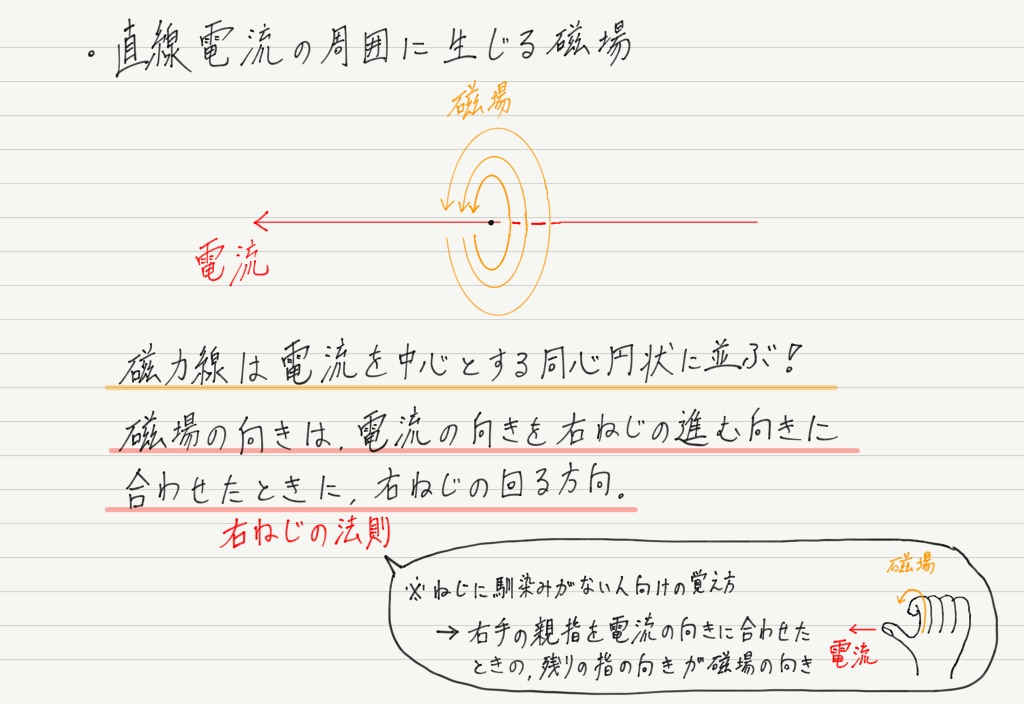 ・直線電流の周囲に生じる磁場
磁場
電流
磁力線は電流を中心とする同心円状に並ぶ!
磁場の向きは,電流の向きを右ねじの進む向きに
合わせたときに,右ねじの回る方向。
右ねじの法則
※ねじに馴染みがない人向けの覚え方
→右手の親指を電流の向きに合わせた
ときの,残りの指の向きが磁場の向き
磁場
電流